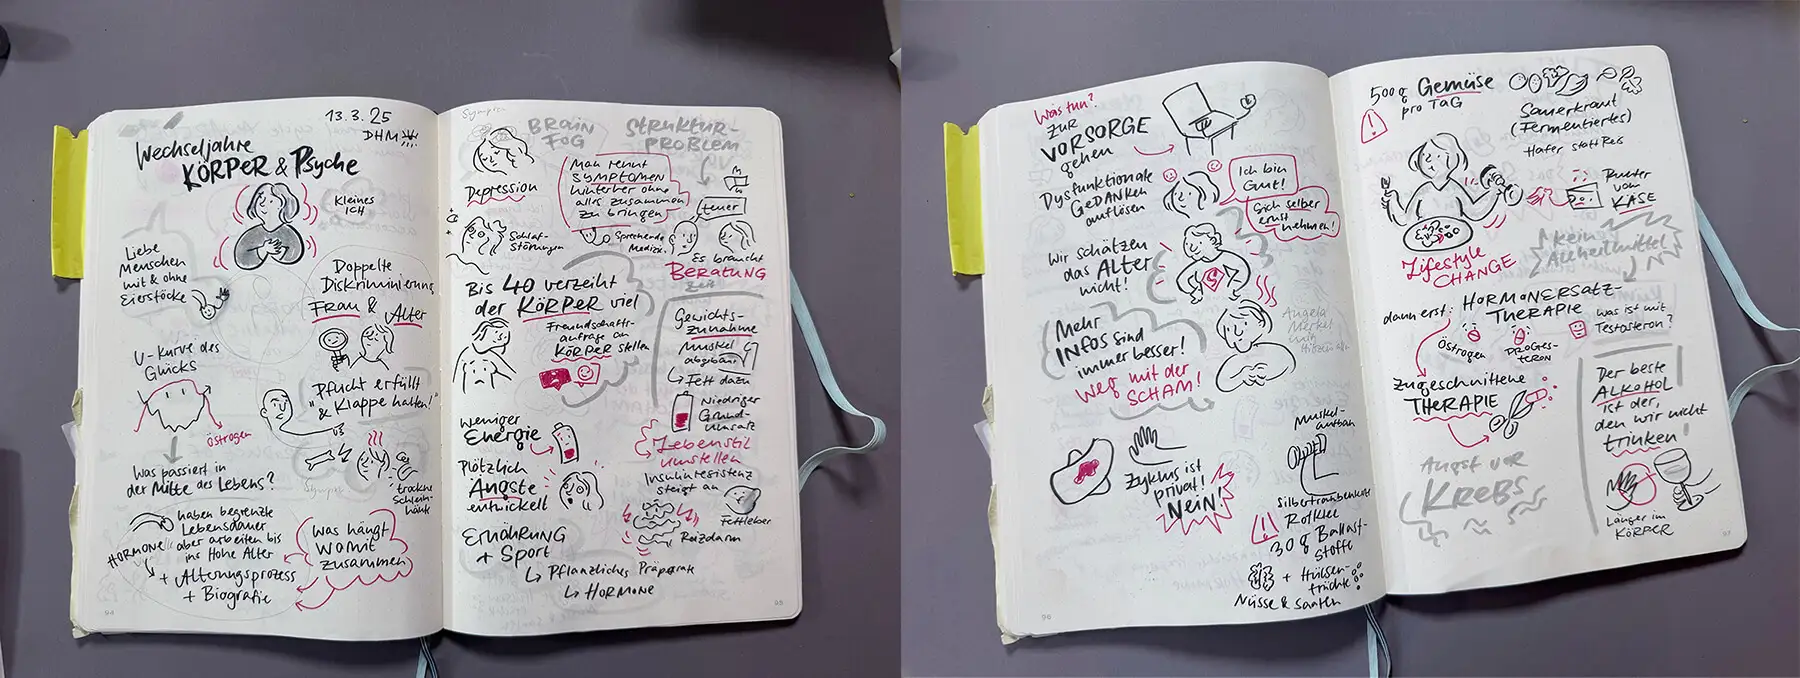 13.3.25
DHM
Wechseljahre
KÖRPER & Psyche
Kleines
ICH
Liebe
Menschen
mit & ohne
Eierstöcke
Doppelte
Diskriminierung
Frau & Alter
U-Kurve des
Glücks
"Pflicht erfüllt
& Klappe halten!"
Östrogen
Was passiert in
der Mitte des Lebens?
trockne
Schleim-
häute
HORMONE
haben begrenzte
Lebensdauer
aber arbeiten bis
ins Hohe Alter
+ Alterungsprozess
+ Biografie
Was hängt
womit
zusammen
94
Symptom
BRAIN
FOG
STRUKTUR-
PROBLEM
Depression
Man rennt
SYMPTOMEN
hinterher ohne
alles zusammen
zu bringen
teuer
Schlaf-
störungen
Sprechende
Medizin
Es braucht
BERATUNG
Zeit
Bis 40 verzeiht
der KÖRPER viel
Freundschafts-
anfrage an
KÖRPER stellen
Gewichts-
Zunahme
Muskel
abgebaut
Fett dazu
Niedriger
Grund-
umsatz
weniger
Energie
Lebensstil
umstellen
Plötzlich
Ängste
entwickelt
Insulinresistenz
steigt an
Fettleber
Reizdarm
ERNÄHRUNG
+ Sport
↳ Pflanzliches Präparate
↳ HORMONE
95
Was tun?
ZUR
VORSORGE
gehen
Dysfunktionale
GEDANKEN
auflösen
Ich bin
Gut!
Sich selber
ernst
nehmen!
Wir schätzen
das ALTER
nicht!
Mehr
INFOS sind
immer besser!
weg mit der
SCHAM!
Angela
Merkel
mit
Zyklus ist
privat!
NEIN!
Muskel-
aufbau
Silbertraubenkerze
Rotklee
30 g Ballast-
Stoffe
+ Hülsen-
früchte
Nüsse & Saaten
96
500 g Gemüse
pro TAG
Sauerkraut
(Fermentiertes)
Hafer statt Reis
Runter
vom
KÄSE
Lifestyle
CHANGE
Kein
Allheilmittel
dann erst: HORMONERSATZ-
THERAPIE
Östrogen
PROGES-
TERON
was ist mit
Testosteron?
Zugeschnittene
THERAPIE
Der beste
ALKOHOL
ist der,
den wir nicht
trinken!
Angst vor
KREBS
Länger im
KÖRPER
97